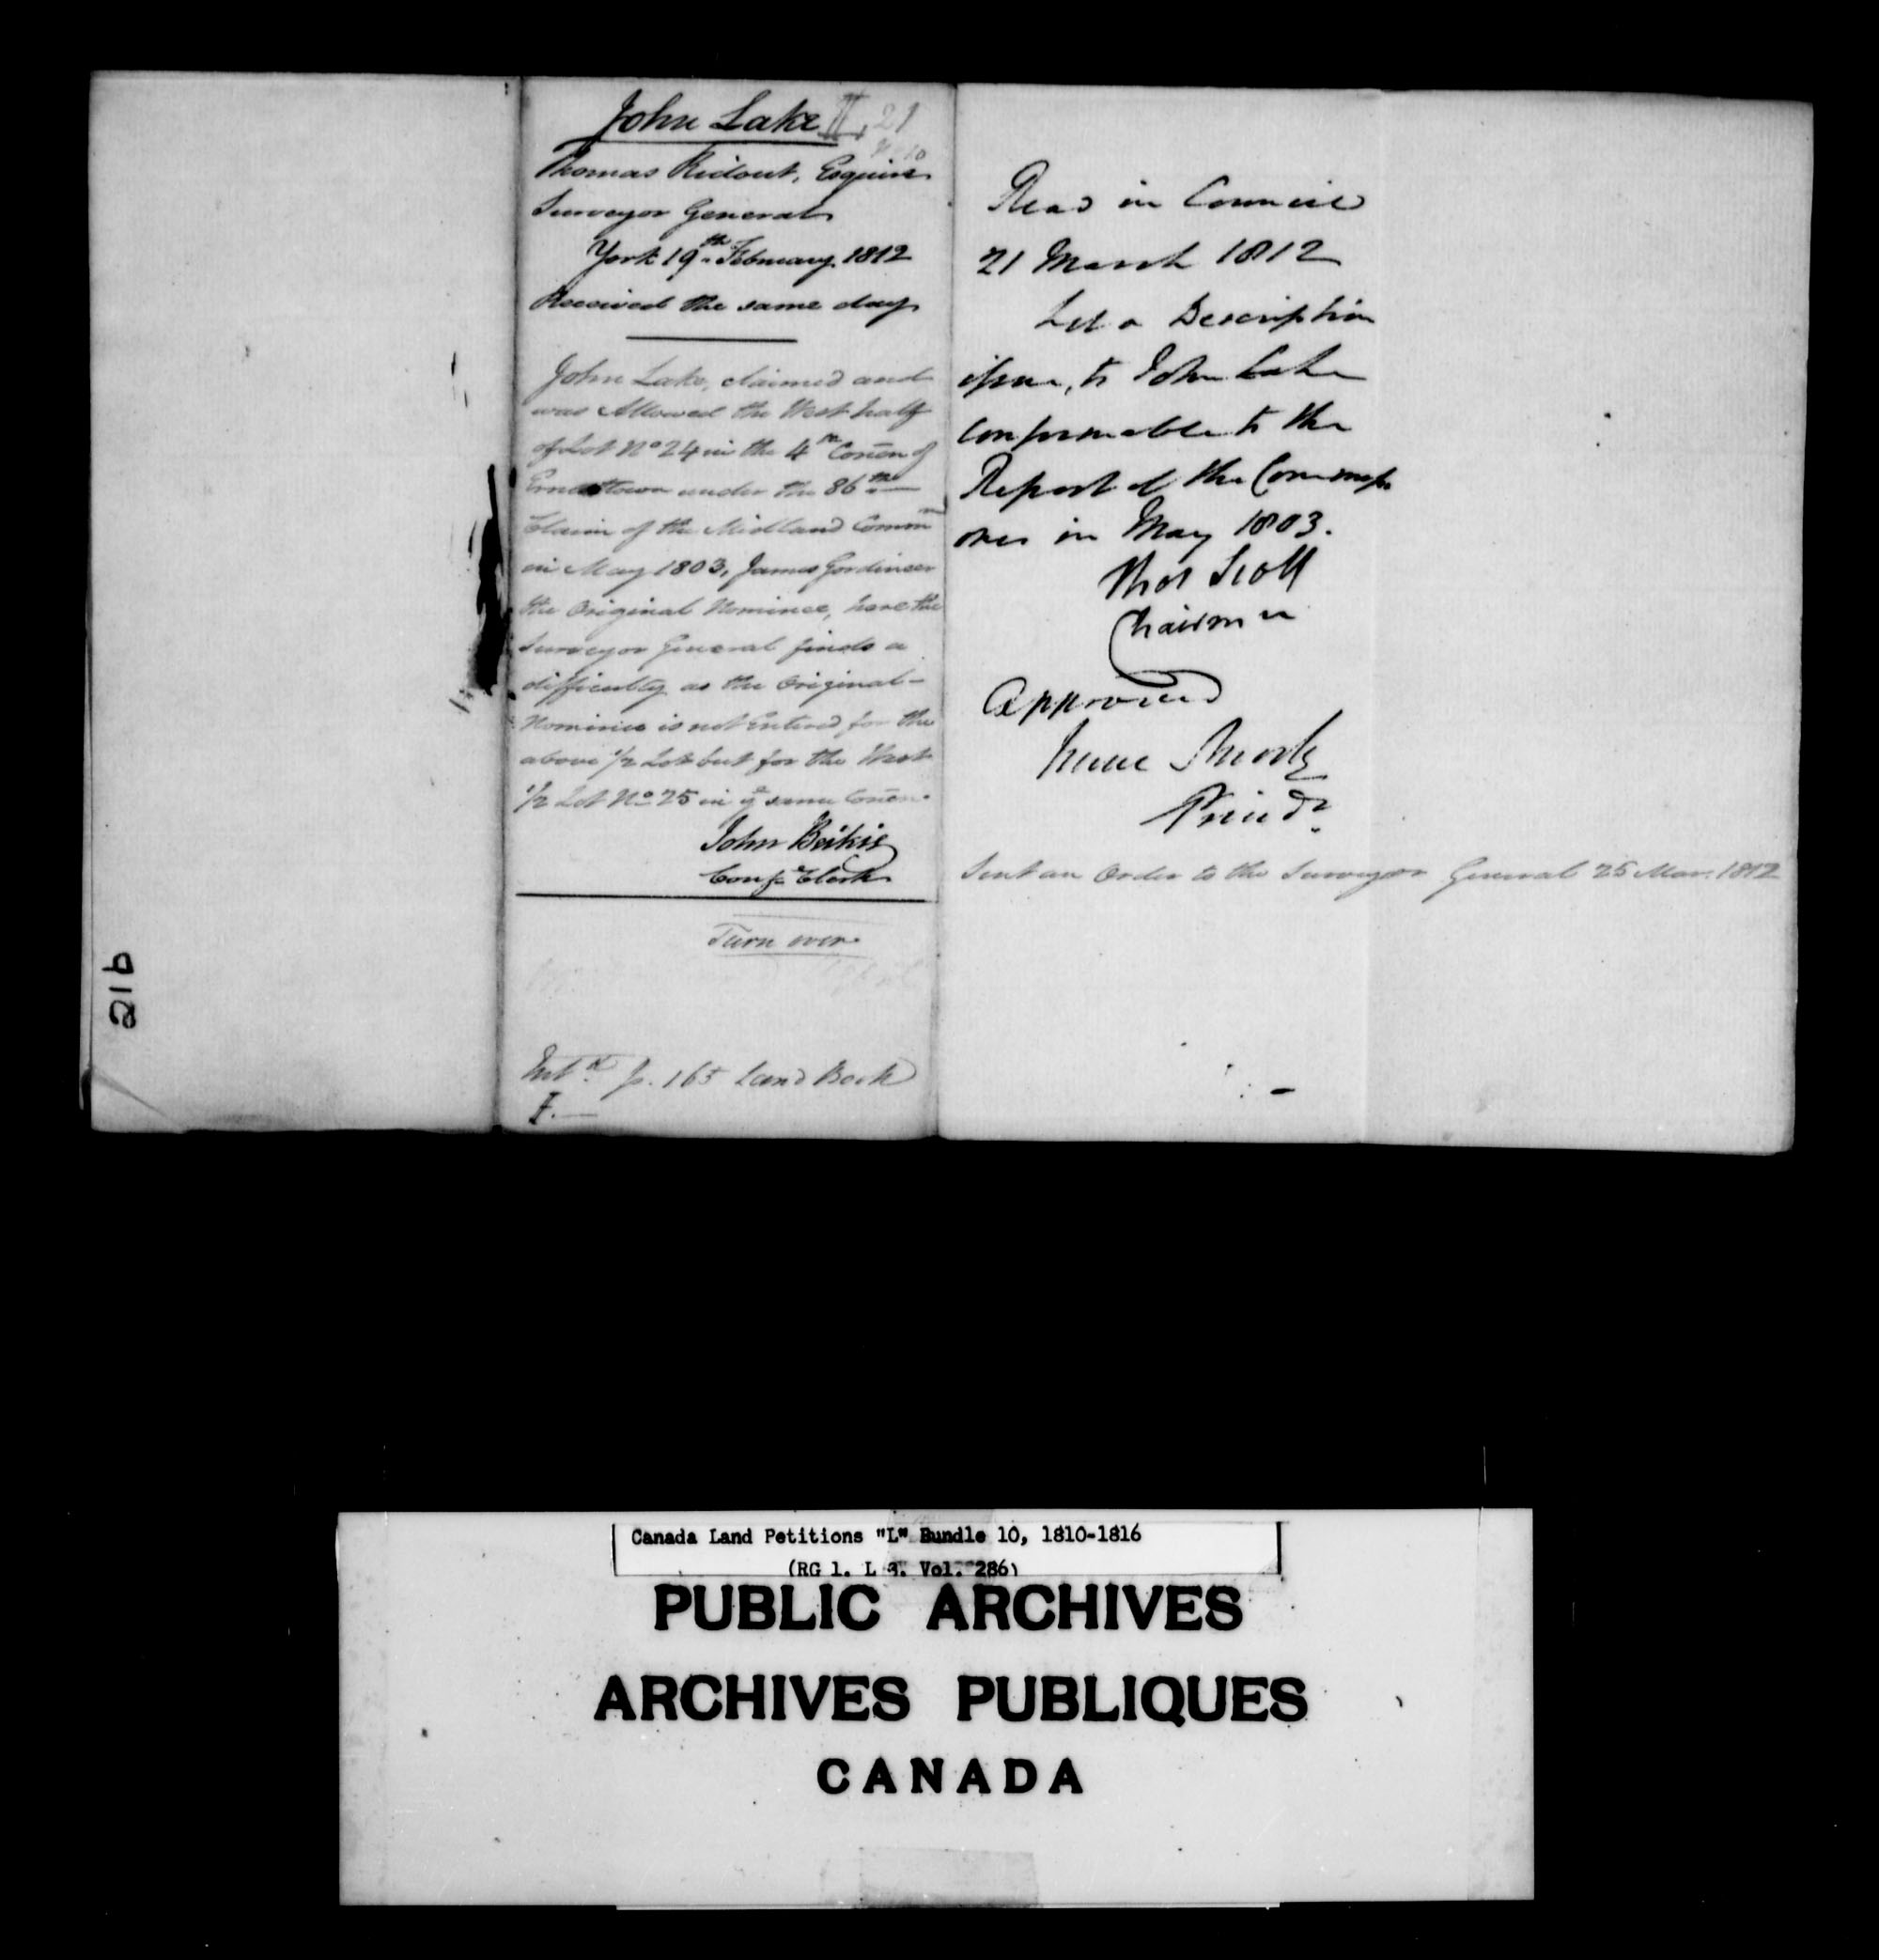 John Lake II, 21
Thomas Ridout, Esquire
Surveyor General
York 19th February 1812
Received the same day
John Lake, claimed and
was Allowed the West half
of Lot No 24 in the 4th Concn of
Ernesttown under the 86th
Claim of the Midland Commn
in May 1803, James Gordineer
the Original Nominee, here the
Surveyor General finds a
difficulty as the Original
Nominee is not Entered for the
above 1/2 Lot but for the West
1/2 Lot No 25 in ye same Concn.
John Beikie
Conf. Clerk
Turn over
Entd p. 165 Land Book
I.
Read in Council
21 March 1812
Let a Description
issue, to John Lake
conformable to the
Report of the Commissi
ones in May 1803.
Thos Scott
Chairman
Approved
Isaac Brock
Presidt
Sent an Order to the Surveyor General 25 Mar. 1812
91B
Canada Land Petitions "L" Bundle 10, 1810-1816
(RG 1, L 3, Vol. 286)
PUBLIC ARCHIVES
ARCHIVES PUBLIQUES
CANADA